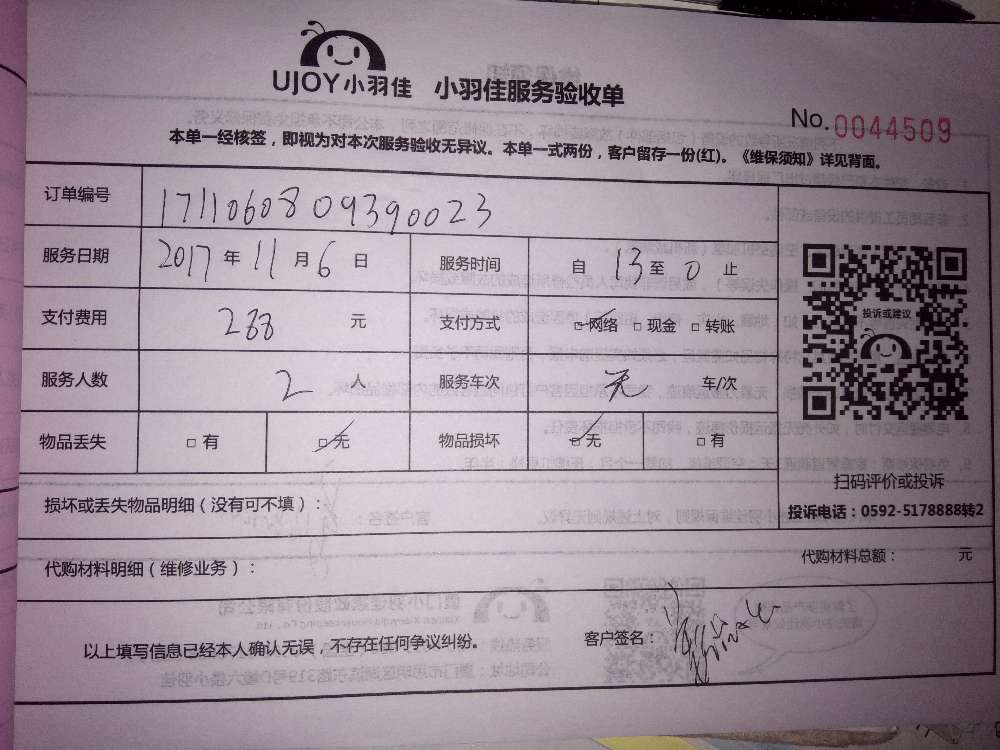 UJOY小羽佳 小羽佳服务验收单
No.0044509
本单一经核签，即视为对本次服务验收无异议。本单一式两份，客户留存一份(红)。《维保须知》详见背面。
订单编号 17110608 09390023
服务日期 2017年11月6日 服务时间 自13至0止
支付费用 288元 支付方式 网络 □现金 □转账
服务人数 2人 服务车次 无 车/次
物品丢失 □有 □无 物品损坏 □无 □有
投诉或建议
扫码评价或投诉
投诉电话：0592-5178888转2
损坏或丢失物品明细（没有可不填）：
代购材料明细（维修业务）： 代购材料总额： 元
以上填写信息已经本人确认无误，不存在任何争议纠纷。 客户签名：